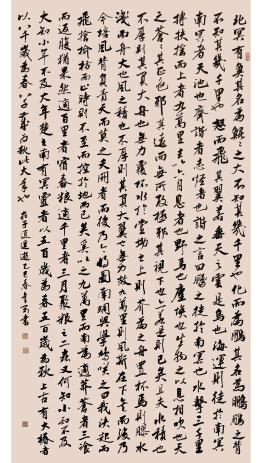 北冥有魚其名為鯤〻之大不知其幾千里也化而為鳥其名為鵬鵬之背
不知其幾千里也怒而飛其翼若垂天之雲是鳥也海運則將徙於
南冥南冥者天池也齊諧者志怪者也諧之言曰鵬之徙於南冥也水擊三千里
摶扶搖而上者九萬里去以六月息者也野馬也塵埃也生物之以息相吹也天
之蒼〻其正色邪其遠而無所至極邪其視下也亦若是則已矣且夫水之積也
不厚則其負大舟也無力覆杯水於堂坳之上則芥為之舟置杯焉則膠水
淺而舟大也風之積也不厚則其負大翼也無力故九萬里則風斯在下矣而後乃
今培風背負青天而莫之夭閼者而後乃今將圖南蜩與學鳩笑之曰我決起而
飛搶榆枋而止時則不至而控於地而已矣奚以之九萬里而南為適莽蒼者三飡
而返腹猶果然適百里者宿舂糧適千里者三月聚糧之二蟲又何知小知不及
大知小年不及大年楚之南有冥靈者以五百歲為春五百歲為秋上古有大椿者
以八千歲為春八千歲為秋此大年也 莊子逍遙遊乙巳春書